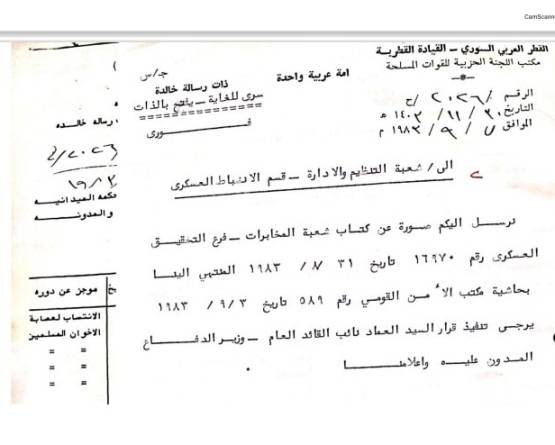 CamScann
القطر العربي السوري - القيادة القطرية
مكتب اللجنة الحزبية للقوات المسلحة
امة عربية واحدة
ج/س
ذات رسالة خالدة
سرى للغاية - يفتح بالذات
فورى
الرقم / ٢٠٢٦ /ح
التاريخ ٣٠ / ١١ / ١٤٠٣ هـ
الموافق ٧ / ٩ / ١٩٨٣ م
الى / شعبة التنظيم والادارة - قسم الانضباط العسكرى
نرسل اليكم صورة عن كتاب شعبة المخابرات - فرع التحقيق
العسكرى رقم ١٦٩٧٠ تاريخ ٣١ / ٨ / ١٩٨٣ المنتهي الينا
بحاشية مكتب الأمن القومي رقم ٥٨٩ تاريخ ٩/٣ / ١٩٨٣
يرجى تنفيذ قرار السيد العماد نائب القائد العام - وزير الدفاع
المدون عليه واعلامنا
رسالة خالده
٢٠٢٦
١٩٨٣
الميدانيه
والمدونه
موجز عن دوره
الانتساب لعصابة
الاخوان المسلمين
" "
" "
" "